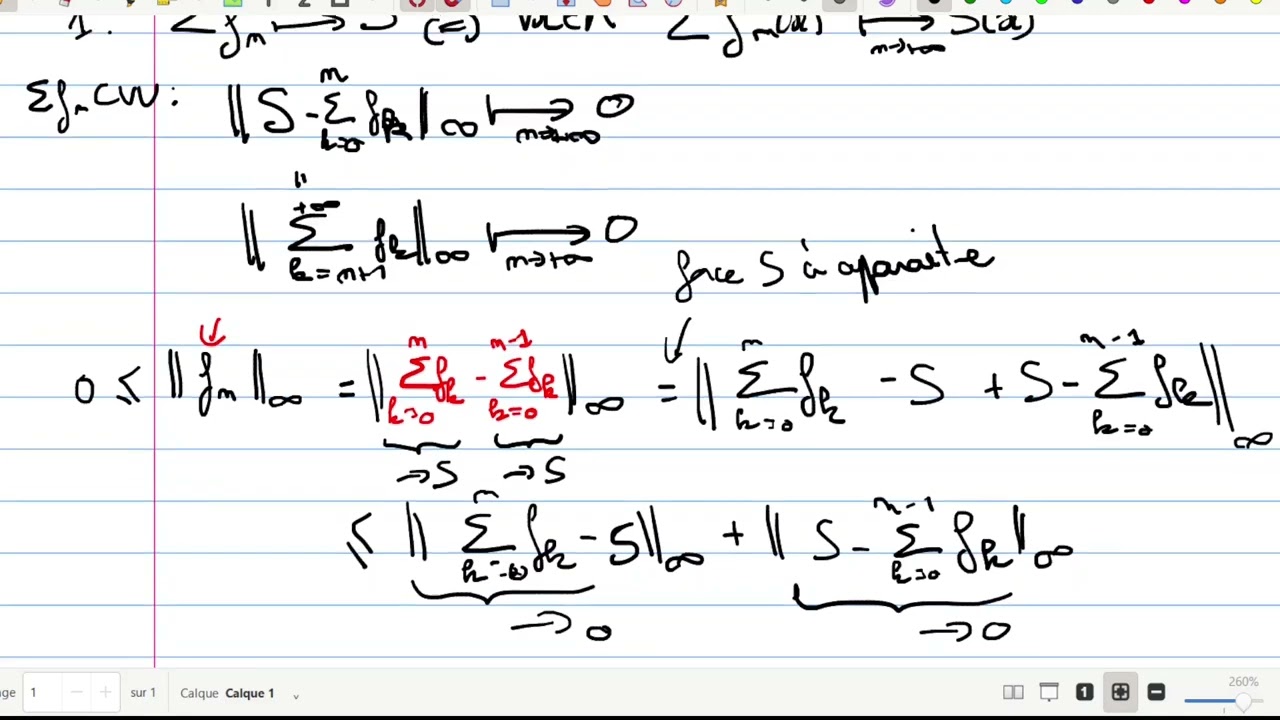 1. Σfn ⟼ S (=) Σ fn(x) ⟼ S(x)
n→+∞
Σfn CVU : ‖ S - Σ_{k=0}^{n} fk ‖∞ ⟼_{n→+∞} 0
"
‖ Σ_{k=n+1}^{+∞} fk ‖∞ ⟼_{n→+∞} 0
force S à aparaître
0 ≤ ‖ fn ‖∞ = ‖ Σ_{k=0}^{n} fk - Σ_{k=0}^{n-1} fk ‖∞ = ‖ Σ_{k=0}^{n} fk - S + S - Σ_{k=0}^{n-1} fk ‖∞
→S →S
≤ ‖ Σ_{k=0}^{n} fk - S ‖∞ + ‖ S - Σ_{k=0}^{n-1} fk ‖∞
→0 →0
age 1 sur 1 Calque Calque 1 1 260%